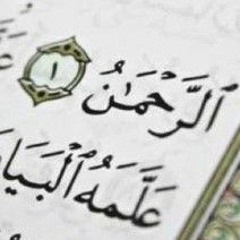 ٱلرَّحْمَٰنُ ١
عَلَّمَهُ ٱلْبَيَا